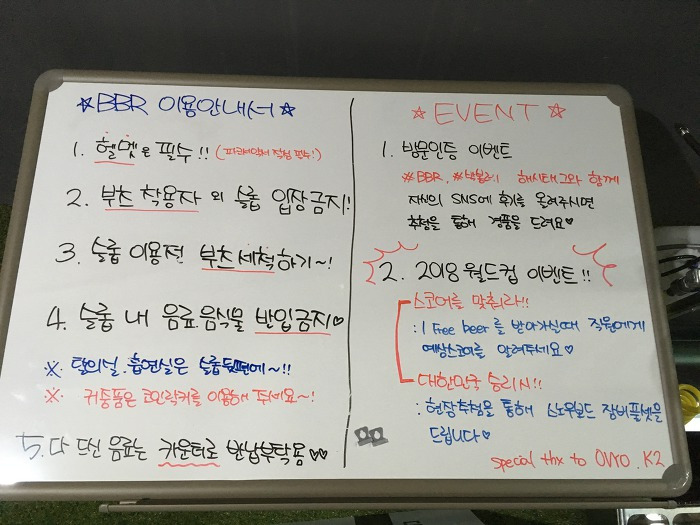 ☆BBR 이용안내서☆
1. 헬멧은 필수!! (파크레인에서 착용 필수!)
2. 부츠 착용자 외 슬롭 입장금지!
3. 슬롭 이용전 부츠세척하기~!
4. 슬롭 내 음료 음식물 반입금지♡
※ 탈의실.흡연실은 슬롭뒷편에~!!
※ 귀중품은 코인락커를 이용해 주세요~!
5. 다 드신 음료는 카운터로 반납부탁용♡♡
☆ EVENT ☆
1. 방문인증 이벤트
#BBR, 해시태그와 함께
자신의 SNS에 후기를 올려주시면
추첨을 통해 경품을 드려요♡
2. 2018 월드컵 이벤트!!
스코어를 맞춰라!!
: 1 Free beer 를 받아가실때 직원에게
예상스코어를 알려주세요♡
대한민국 승리시!!
: 현장추첨을 통해 스노우보드 장비풀셋을
드립니다♡
special thx to OVYO . K2